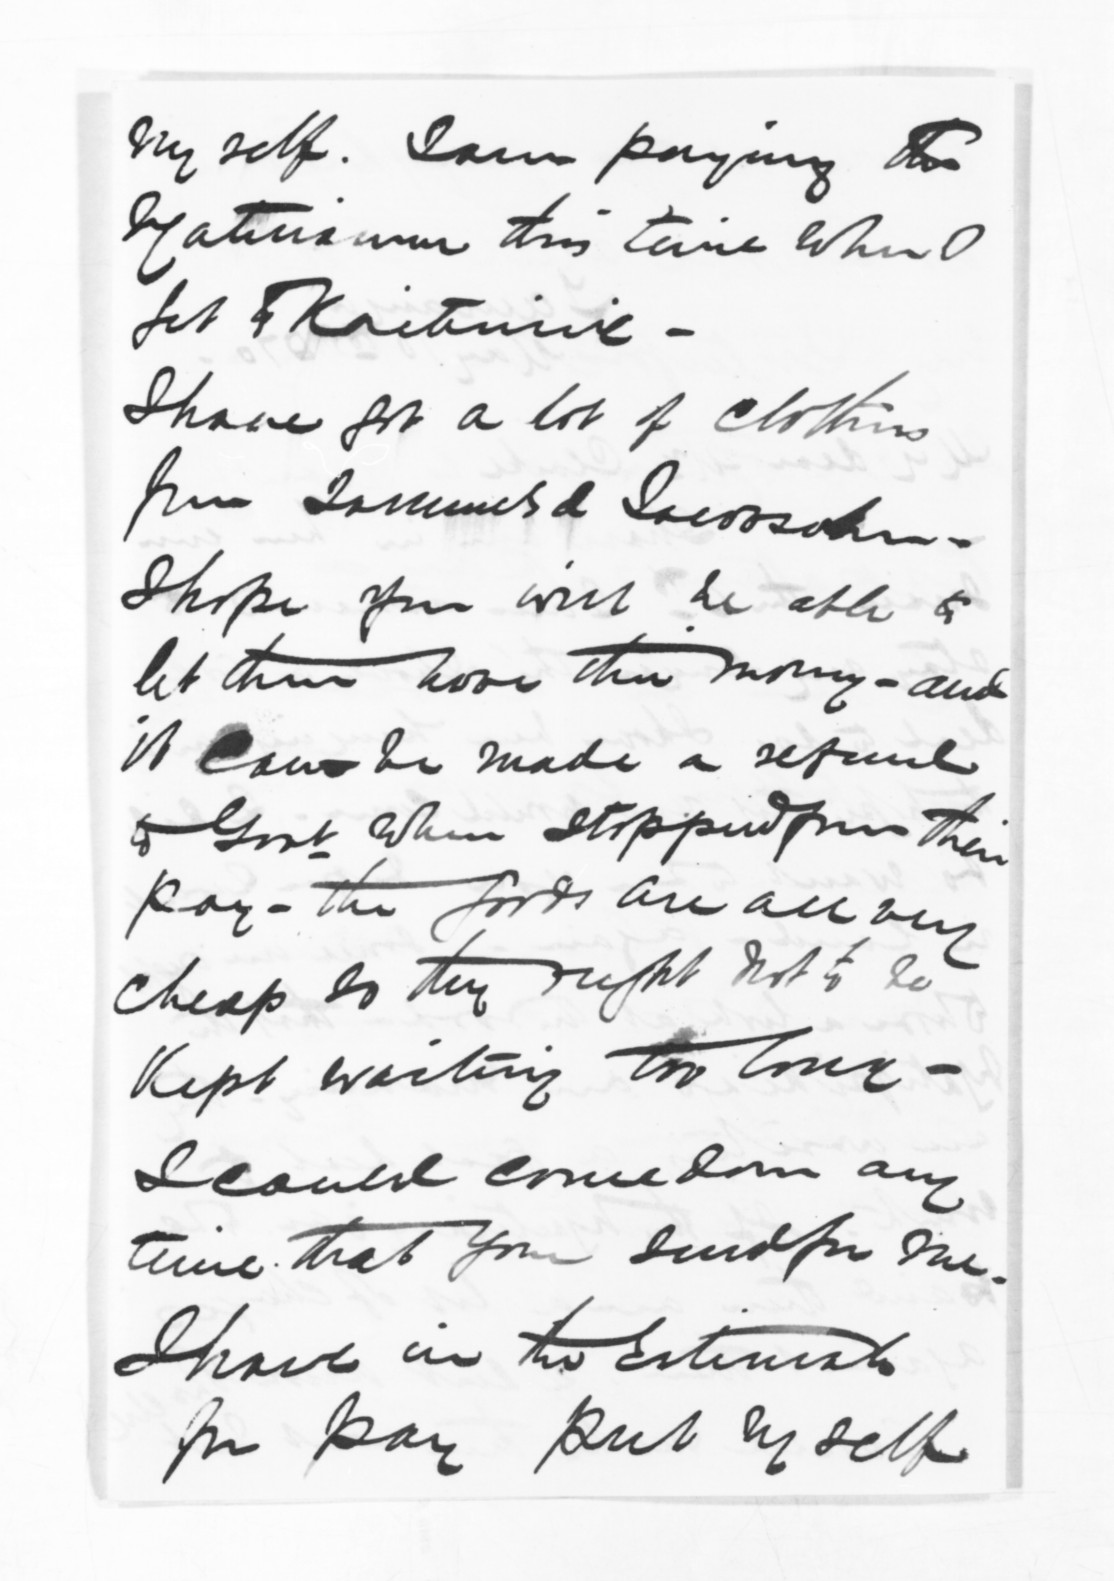 myself. I am paying the
Ngatiriwai this time when I
get to Kaituriwi -
I have got a lot of clothing
from Sammuels & Jacobsohn -
I hope you will be able to
let them have their money - and
it can be made a refund
to Govt when stopped from their
pay - the goods are all very
cheap so they ought not to be
kept waiting too long -
I could come down any
time that you send for me.
I have in the Estimate
for pay put myself